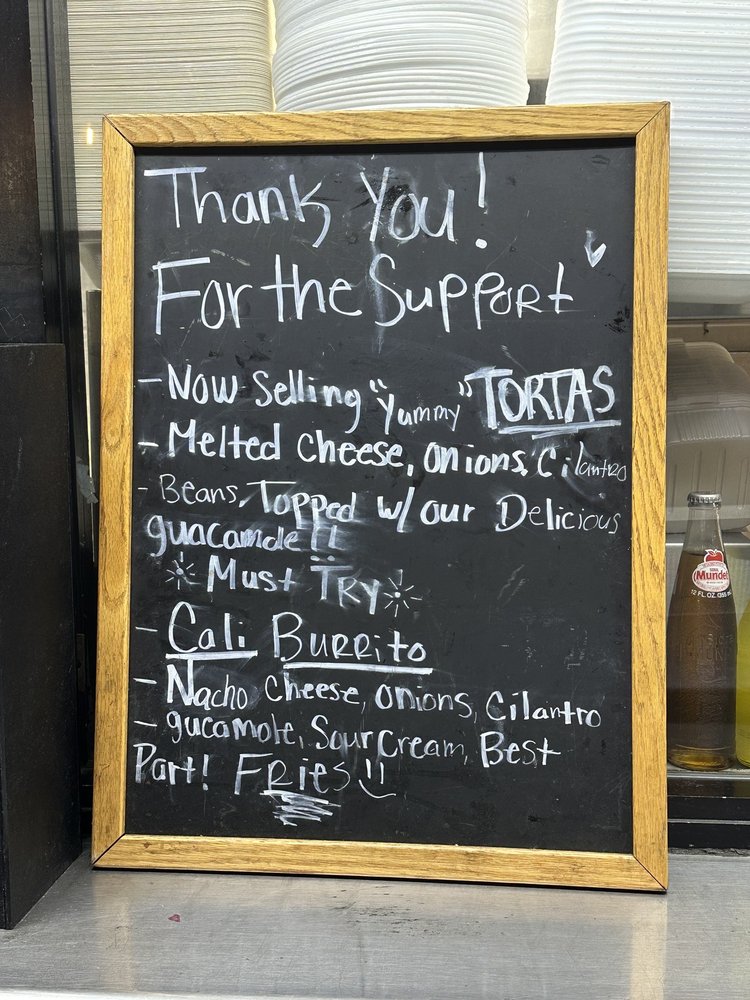 Thank You!
For the Support
- Now Selling "Yummy" TORTAS
- Melted cheese, onions, cilantro
- Beans, Topped w/ our Delicious
guacamole!!
Must TRY
- Cali Burrito
- Nacho cheese, onions, cilantro
- gucamole, Sour Cream, Best
Part! FRies
Mundet
12 FL. OZ.